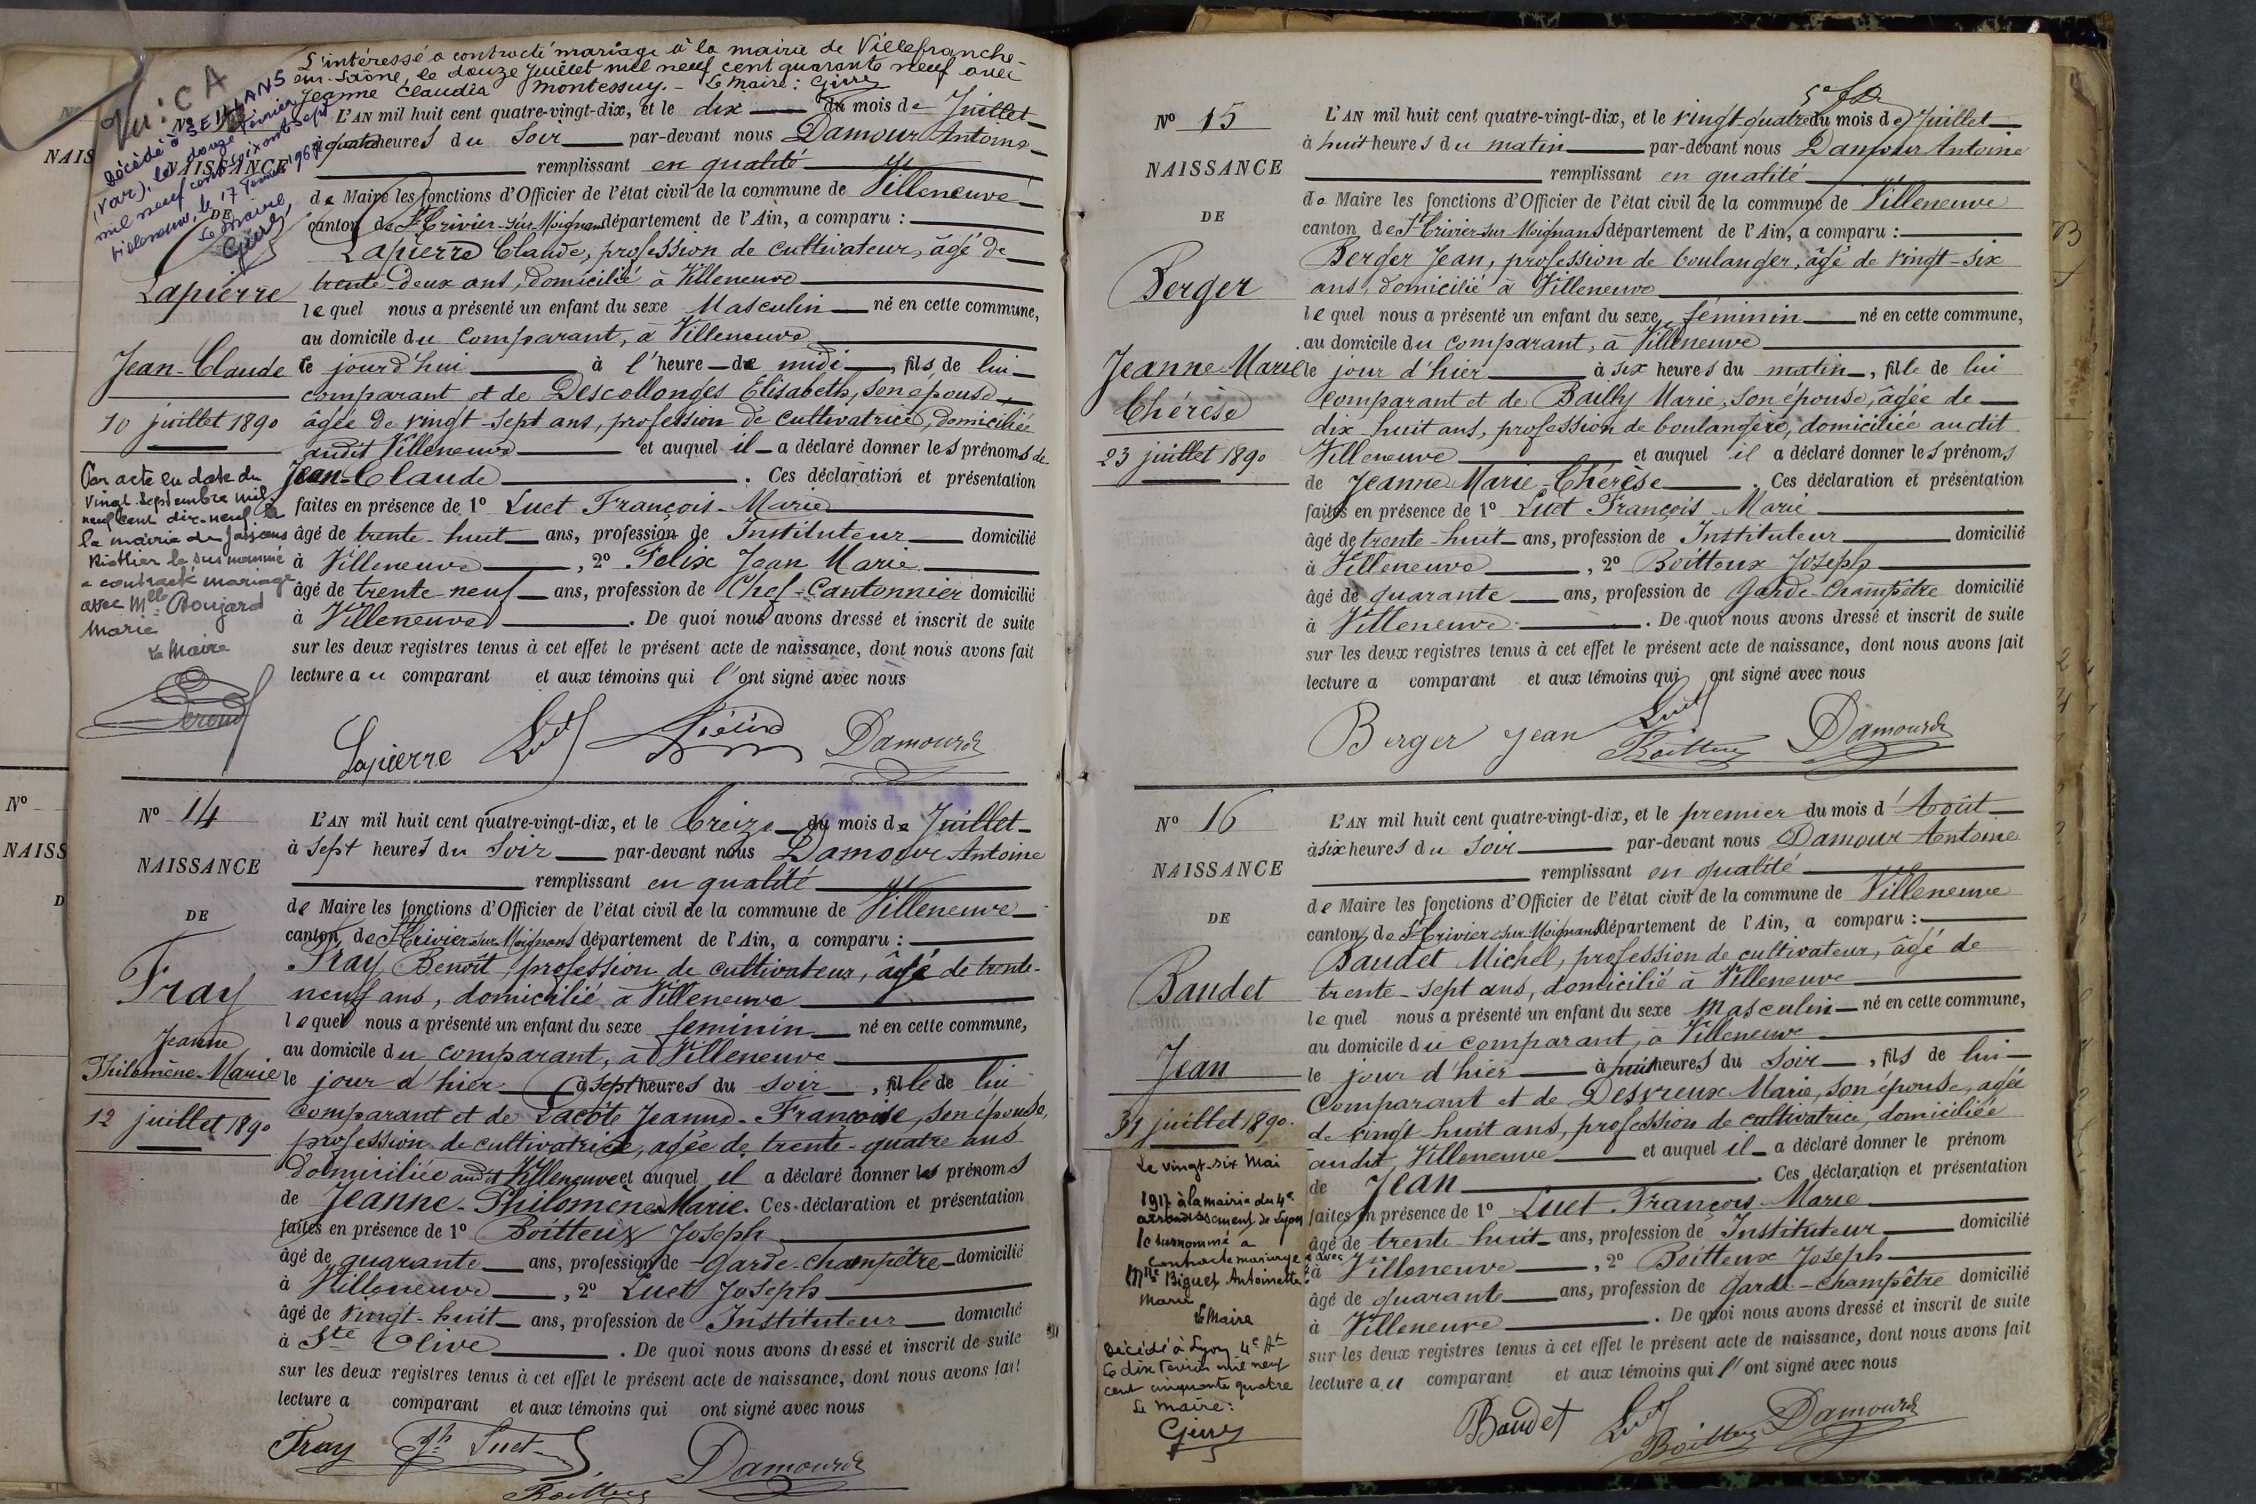 L'intéressé a contracté mariage à la mairie de Villefranche-
sur-Saône, le douze Juillet mil neuf cent quarante neuf avec
Jeanne Claudia Montessuy. - Le Maire :
Vu : CA
Décédé à SEILLANS
(Var), le douze Février
mil neuf cent soixante sept
Villeneuve, le 17 Février 1967
Le Maire,
NAISSANCE
DE
Lapierre
Jean-Claude
10 juillet 1890
Par acte en date du
vingt Septembre mil
neuf cent dix-neuf à
la mairie de Jassans
Riottier le sus nommé
a contracté mariage
avec Mlle Boujard
Marie
Le Maire
L'AN mil huit cent quatre-vingt-dix, et le dix du mois de Juillet
à quatre heures du Soir par-devant nous Damour Antoine
remplissant en qualité
de Maire les fonctions d'Officier de l'état civil de la commune de Villeneuve
canton de St Trivier-sur-Moignans département de l'Ain, a comparu :
Lapierre Claude, profession de cultivateur, âgé de
trente-deux ans, domicilié à Villeneuve
lequel nous a présenté un enfant du sexe Masculin né en cette commune,
au domicile du comparant, à Villeneuve
ce jourd'hui à l'heure de midi, fils de lui
comparant et de Descollonges Elisabeth, son épouse,
âgée de vingt-sept ans, profession de cultivatrice, domiciliée
audit Villeneuve et auquel il a déclaré donner les prénoms de
Jean-Claude. Ces déclaration et présentation
faites en présence de 1º Luet François-Marie
âgé de trente-huit ans, profession de Instituteur domicilié
à Villeneuve, 2º Felix Jean Marie
âgé de trente-neuf ans, profession de Chef-Cantonnier domicilié
à Villeneuve. De quoi nous avons dressé et inscrit de suite
sur les deux registres tenus à cet effet le présent acte de naissance, dont nous avons fait
lecture au comparant et aux témoins qui l'ont signé avec nous
Lapierre Luet Félix Damour
Nº 14
NAISSANCE
DE
Fray
Jeanne
Philomène-Marie
12 juillet 1890
L'AN mil huit cent quatre-vingt-dix, et le treize du mois de Juillet
à sept heures du Soir par-devant nous Damour Antoine
remplissant en qualité
de Maire les fonctions d'Officier de l'état civil de la commune de Villeneuve
canton de St Trivier-sur-Moignans département de l'Ain, a comparu :
Fray Benoît, profession de cultivateur, âgé de trente-
neuf ans, domicilié à Villeneuve
lequel nous a présenté un enfant du sexe feminin né en cette commune,
au domicile du comparant, à Villeneuve
le jour d'hier à sept heures du soir, fille de lui
comparant et de Lacôte Jeanne-Françoise, son épouse,
profession de cultivatrice, agée de trente-quatre ans
domiciliée audit Villeneuve et auquel il a déclaré donner les prénoms
de Jeanne-Philomène Marie. Ces déclaration et présentation
faites en présence de 1º Boitteux Joseph
âgé de quarante ans, profession de Garde-champêtre domicilié
à Villeneuve, 2º Luet Joseph
âgé de vingt-huit ans, profession de Instituteur domicilié
à Ste Olive. De quoi nous avons dressé et inscrit de suite
sur les deux registres tenus à cet effet le présent acte de naissance, dont nous avons fait
lecture a comparant et aux témoins qui ont signé avec nous
Fray Jh Luet Damour
Nº 15
NAISSANCE
DE
Berger
Jeanne-Marie
Thérèse
23 juillet 1890
L'AN mil huit cent quatre-vingt-dix, et le vingt-quatre du mois de Juillet
à huit heures du matin par-devant nous Damour Antoine
remplissant en qualité
de Maire les fonctions d'Officier de l'état civil de la commune de Villeneuve
canton de St Trivier-sur-Moignans département de l'Ain, a comparu :
Berger Jean, profession de boulanger, âgé de vingt-six
ans, domicilié à Villeneuve
lequel nous a présenté un enfant du sexe féminin né en cette commune,
au domicile du comparant, à Villeneuve
le jour d'hier à six heures du matin, fille de lui
comparant et de Bailly Marie, son épouse, âgée de
dix-huit ans, profession de boulangère, domiciliée audit
Villeneuve et auquel il a déclaré donner les prénoms
de Jeanne Marie-Thérèse. Ces déclaration et présentation
faites en présence de 1º Luet François-Marie
âgé de trente-huit ans, profession de Instituteur domicilié
à Villeneuve, 2º Boitteux Joseph
âgé de quarante ans, profession de Garde-Champêtre domicilié
à Villeneuve. De quoi nous avons dressé et inscrit de suite
sur les deux registres tenus à cet effet le présent acte de naissance, dont nous avons fait
lecture a comparant et aux témoins qui ont signé avec nous
Berger Jean Luet Boitteux Damour
Nº 16
NAISSANCE
DE
Baudet
Jean
31 juillet 1890.
Le vingt-six Mai
1917 à la mairie du 4e
arrondissement de Lyon
le surnommé a
contracté mariage avec
Mlle Biguet Antoinette
Marie
Le Maire
Décédé à Lyon 4e At
le dix Février mil neuf
cent cinquante quatre
Le Maire :
L'AN mil huit cent quatre-vingt-dix, et le premier du mois d'Août
à six heures du Soir par-devant nous Damour Antoine
remplissant en qualité
de Maire les fonctions d'Officier de l'état civil de la commune de Villeneuve
canton de St Trivier-sur-Moignans département de l'Ain, a comparu :
Baudet Michel, profession de cultivateur, âgé de
trente-sept ans, domicilié à Villeneuve
lequel nous a présenté un enfant du sexe Masculin né en cette commune,
au domicile du comparant, à Villeneuve
le jour d'hier à huit heures du Soir, fils de lui
Comparant et de Desvreux Marie, son épouse, agée
de vingt-huit ans, profession de cultivatrice, domiciliée
audit Villeneuve et auquel il a déclaré donner le prénom
de Jean. Ces déclaration et présentation
faites en présence de 1º Luet François-Marie
âgé de trente-huit ans, profession de Instituteur domicilié
à Villeneuve, 2º Boitteux Joseph
âgé de quarante ans, profession de Garde-Champêtre domicilié
à Villeneuve. De quoi nous avons dressé et inscrit de suite
sur les deux registres tenus à cet effet le présent acte de naissance, dont nous avons fait
lecture au comparant et aux témoins qui l'ont signé avec nous
Baudet Luet Boitteux Damour